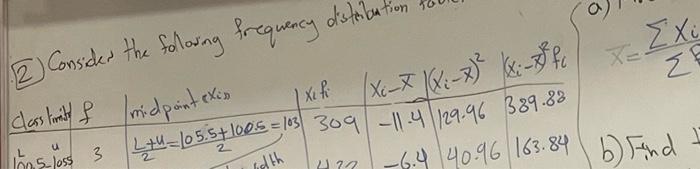 2) Consider the following frequency distribution
class limit f midpoint (xi) xifi xi-x̄ (xi-x̄)² (xi-x̄)² fi
L u
100.5-105.5 3 L+u/2 = 105.5+100.5/2 = 103 309 -11.4 129.96 389.88
-6.4 40.96 163.84
a)
x̄ = Σxi
b) Find